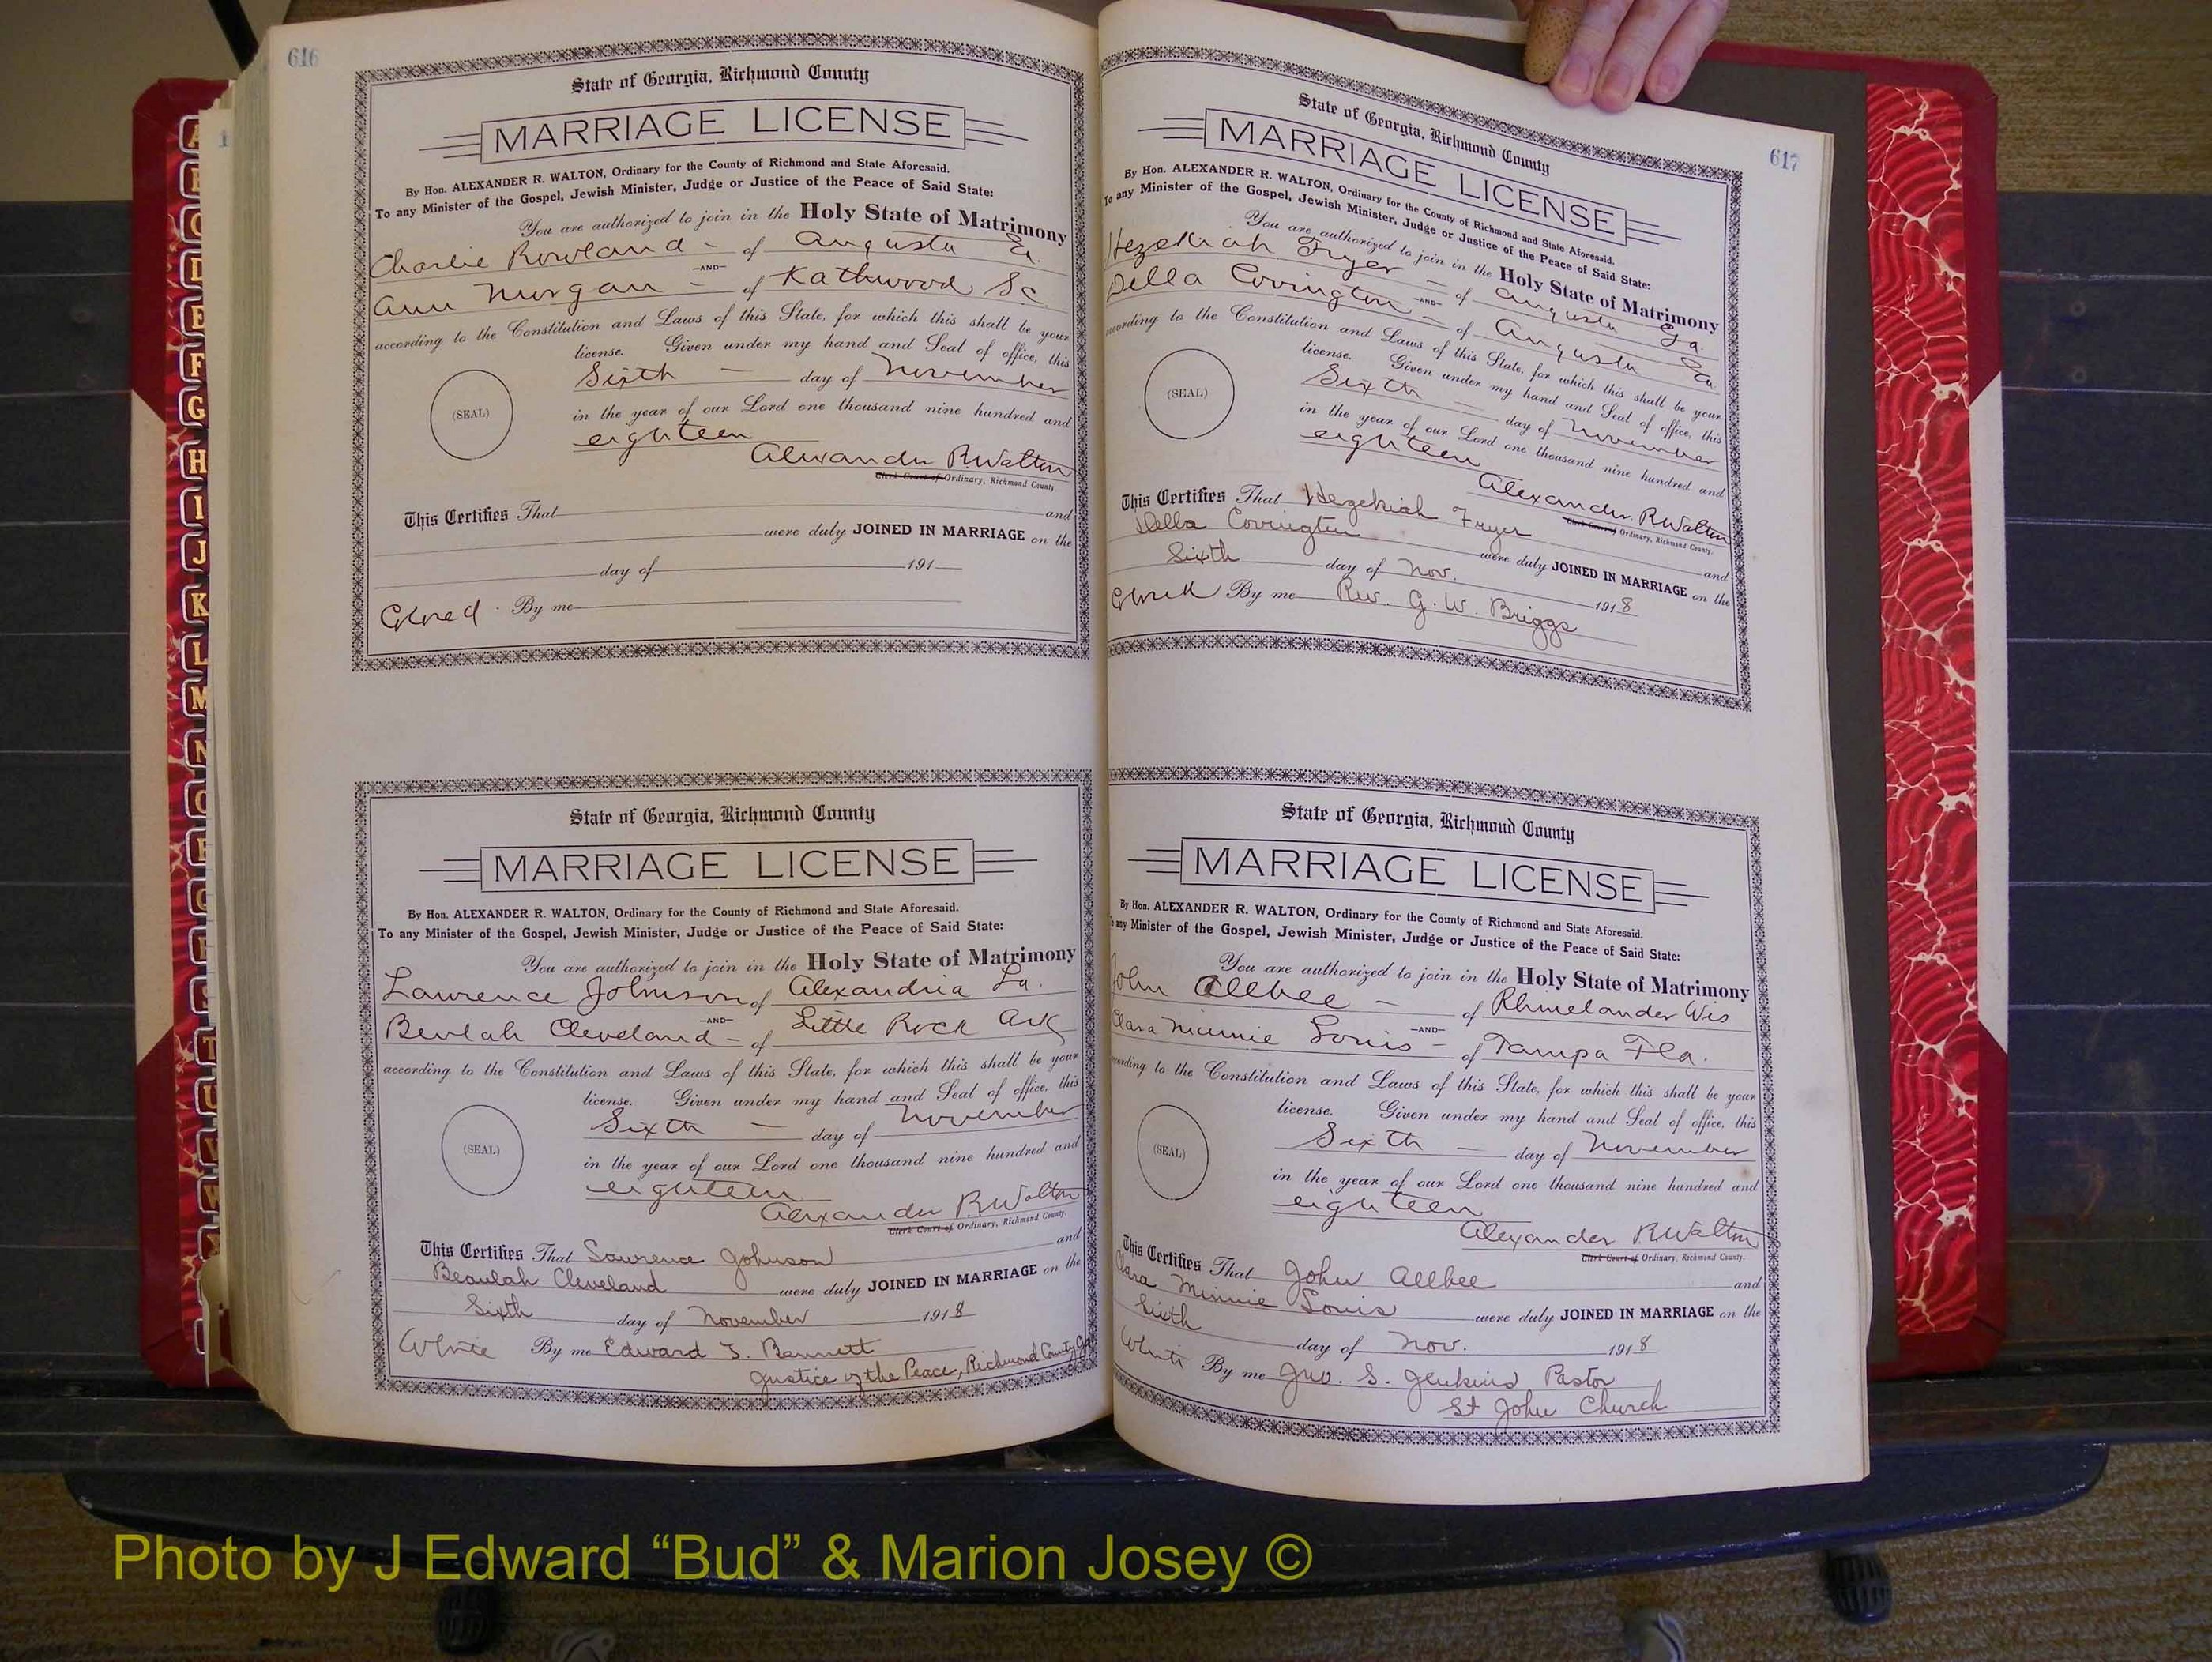 616
State of Georgia, Richmond County
MARRIAGE LICENSE
By Hon. ALEXANDER R. WALTON, Ordinary for the County of Richmond and State Aforesaid.
To any Minister of the Gospel, Jewish Minister, Judge or Justice of the Peace of Said State:
You are authorized to join in the Holy State of Matrimony
Charlie Rowland - of Augusta Ga.
-AND-
Ann Morgan - of Kathwood Sc
according to the Constitution and Laws of this State, for which this shall be your
license. Given under my hand and Seal of office, this
Sixth - day of November
(SEAL)
in the year of our Lord one thousand nine hundred and
eighteen
Alexander R Walton
Clerk Court of Ordinary, Richmond County.
This Certifies That and
were duly JOINED IN MARRIAGE on the
day of 191
Colored. By me
State of Georgia, Richmond County
MARRIAGE LICENSE
By Hon. ALEXANDER R. WALTON, Ordinary for the County of Richmond and State Aforesaid.
To any Minister of the Gospel, Jewish Minister, Judge or Justice of the Peace of Said State:
You are authorized to join in the Holy State of Matrimony
Lawrence Johnson of Alexandria La.
-AND-
Beulah Cleveland - of Little Rock Ark
according to the Constitution and Laws of this State, for which this shall be your
license. Given under my hand and Seal of office, this
Sixth - day of November
(SEAL)
in the year of our Lord one thousand nine hundred and
eighteen
Alexander R Walton
Clerk Court of Ordinary, Richmond County.
This Certifies That Lawrence Johnson and
Beaulah Cleveland were duly JOINED IN MARRIAGE on the
Sixth day of November 1918
White By me Edward T. Bennett
Justice of the Peace, Richmond County Ga
617
State of Georgia, Richmond County
MARRIAGE LICENSE
By Hon. ALEXANDER R. WALTON, Ordinary for the County of Richmond and State Aforesaid.
To any Minister of the Gospel, Jewish Minister, Judge or Justice of the Peace of Said State:
You are authorized to join in the Holy State of Matrimony
Hezekiah Fryer - of Augusta Ga.
-AND-
Della Covington - of Augusta Ga.
according to the Constitution and Laws of this State, for which this shall be your
license. Given under my hand and Seal of office, this
Sixth - day of November
(SEAL)
in the year of our Lord one thousand nine hundred and
eighteen
Alexander R Walton
Clerk Court of Ordinary, Richmond County.
This Certifies That Hezekiah Fryer and
Della Covington were duly JOINED IN MARRIAGE on the
Sixth day of Nov. 1918
Colored By me Rev. G. W. Briggs
State of Georgia, Richmond County
MARRIAGE LICENSE
By Hon. ALEXANDER R. WALTON, Ordinary for the County of Richmond and State Aforesaid.
To any Minister of the Gospel, Jewish Minister, Judge or Justice of the Peace of Said State:
You are authorized to join in the Holy State of Matrimony
John Allbee - of Rhinelander Wis
-AND-
Clara Minnie Louis - of Tampa Fla.
according to the Constitution and Laws of this State, for which this shall be your
license. Given under my hand and Seal of office, this
Sixth - day of November
(SEAL)
in the year of our Lord one thousand nine hundred and
eighteen
Alexander R Walton
Clerk Court of Ordinary, Richmond County.
This Certifies That John Allbee and
Clara Minnie Louis were duly JOINED IN MARRIAGE on the
Sixth day of Nov. 1918
White By me Jno. S. Jenkins Pastor
St John Church
A
F
G
H
I
J
K
L
M
N
Photo by J Edward “Bud” & Marion Josey ©